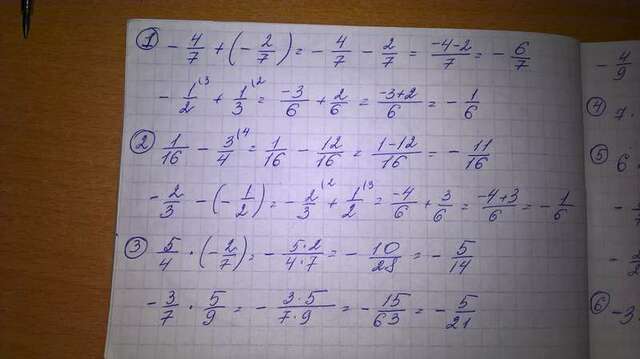 ① -4/7 + (-2/7) = -4/7 - 2/7 = -4-2/7 = -6/7
-1/2 \3 + 1/3 \2 = -3/6 + 2/6 = -3+2/6 = -1/6
② 1/16 - 3/4 \4 = 1/16 - 12/16 = 1-12/16 = -11/16
-2/3 - (-1/2) = -2/3 \2 + 1/2 \3 = -4/6 + 3/6 = -4+3/6 = -1/6
③ 5/4 · (-2/7) = -5·2/4·7 = -10/28 = -5/14
-3/7 · 5/9 = -3·5/7·9 = -15/63 = -5/21
-4/9
④
⑤ 6
⑥ -3